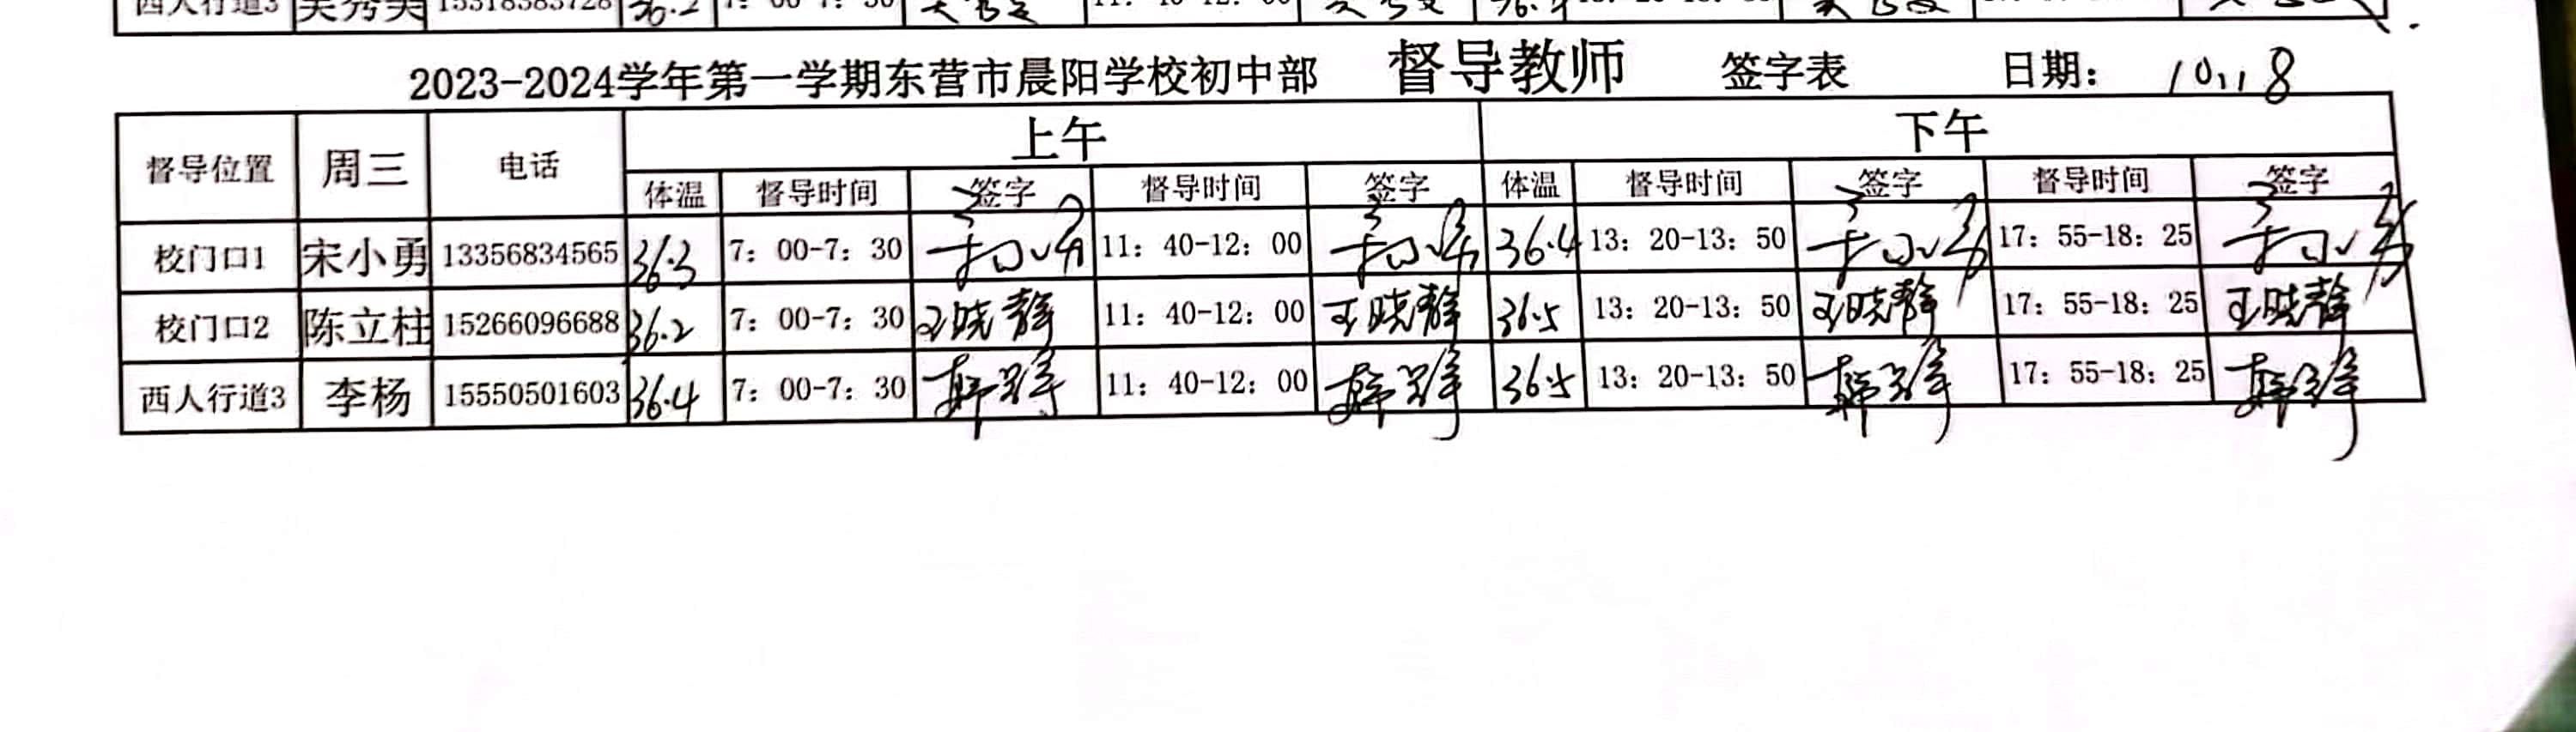 西人行道3 吴秀美 15318383728 36.2 7：00-7：30 11：40-12：00 36.4
2023-2024学年第一学期东营市晨阳学校初中部 督导教师 签字表 日期： 10.18
督导位置 周三 电话 上午 下午
体温 督导时间 签字 督导时间 签字 体温 督导时间 签字 督导时间 签字
校门口1 宋小勇 13356834565 36.3 7：00-7：30 11：40-12：00 36.4 13：20-13：50 17：55-18：25
校门口2 陈立柱 15266096688 36.2 7：00-7：30 王晓静 11：40-12：00 王晓静 36.5 13：20-13：50 王晓静 17：55-18：25 王晓静
西人行道3 李杨 15550501603 36.4 7：00-7：30 11：40-12：00 36.5 13：20-13：50 17：55-18：25